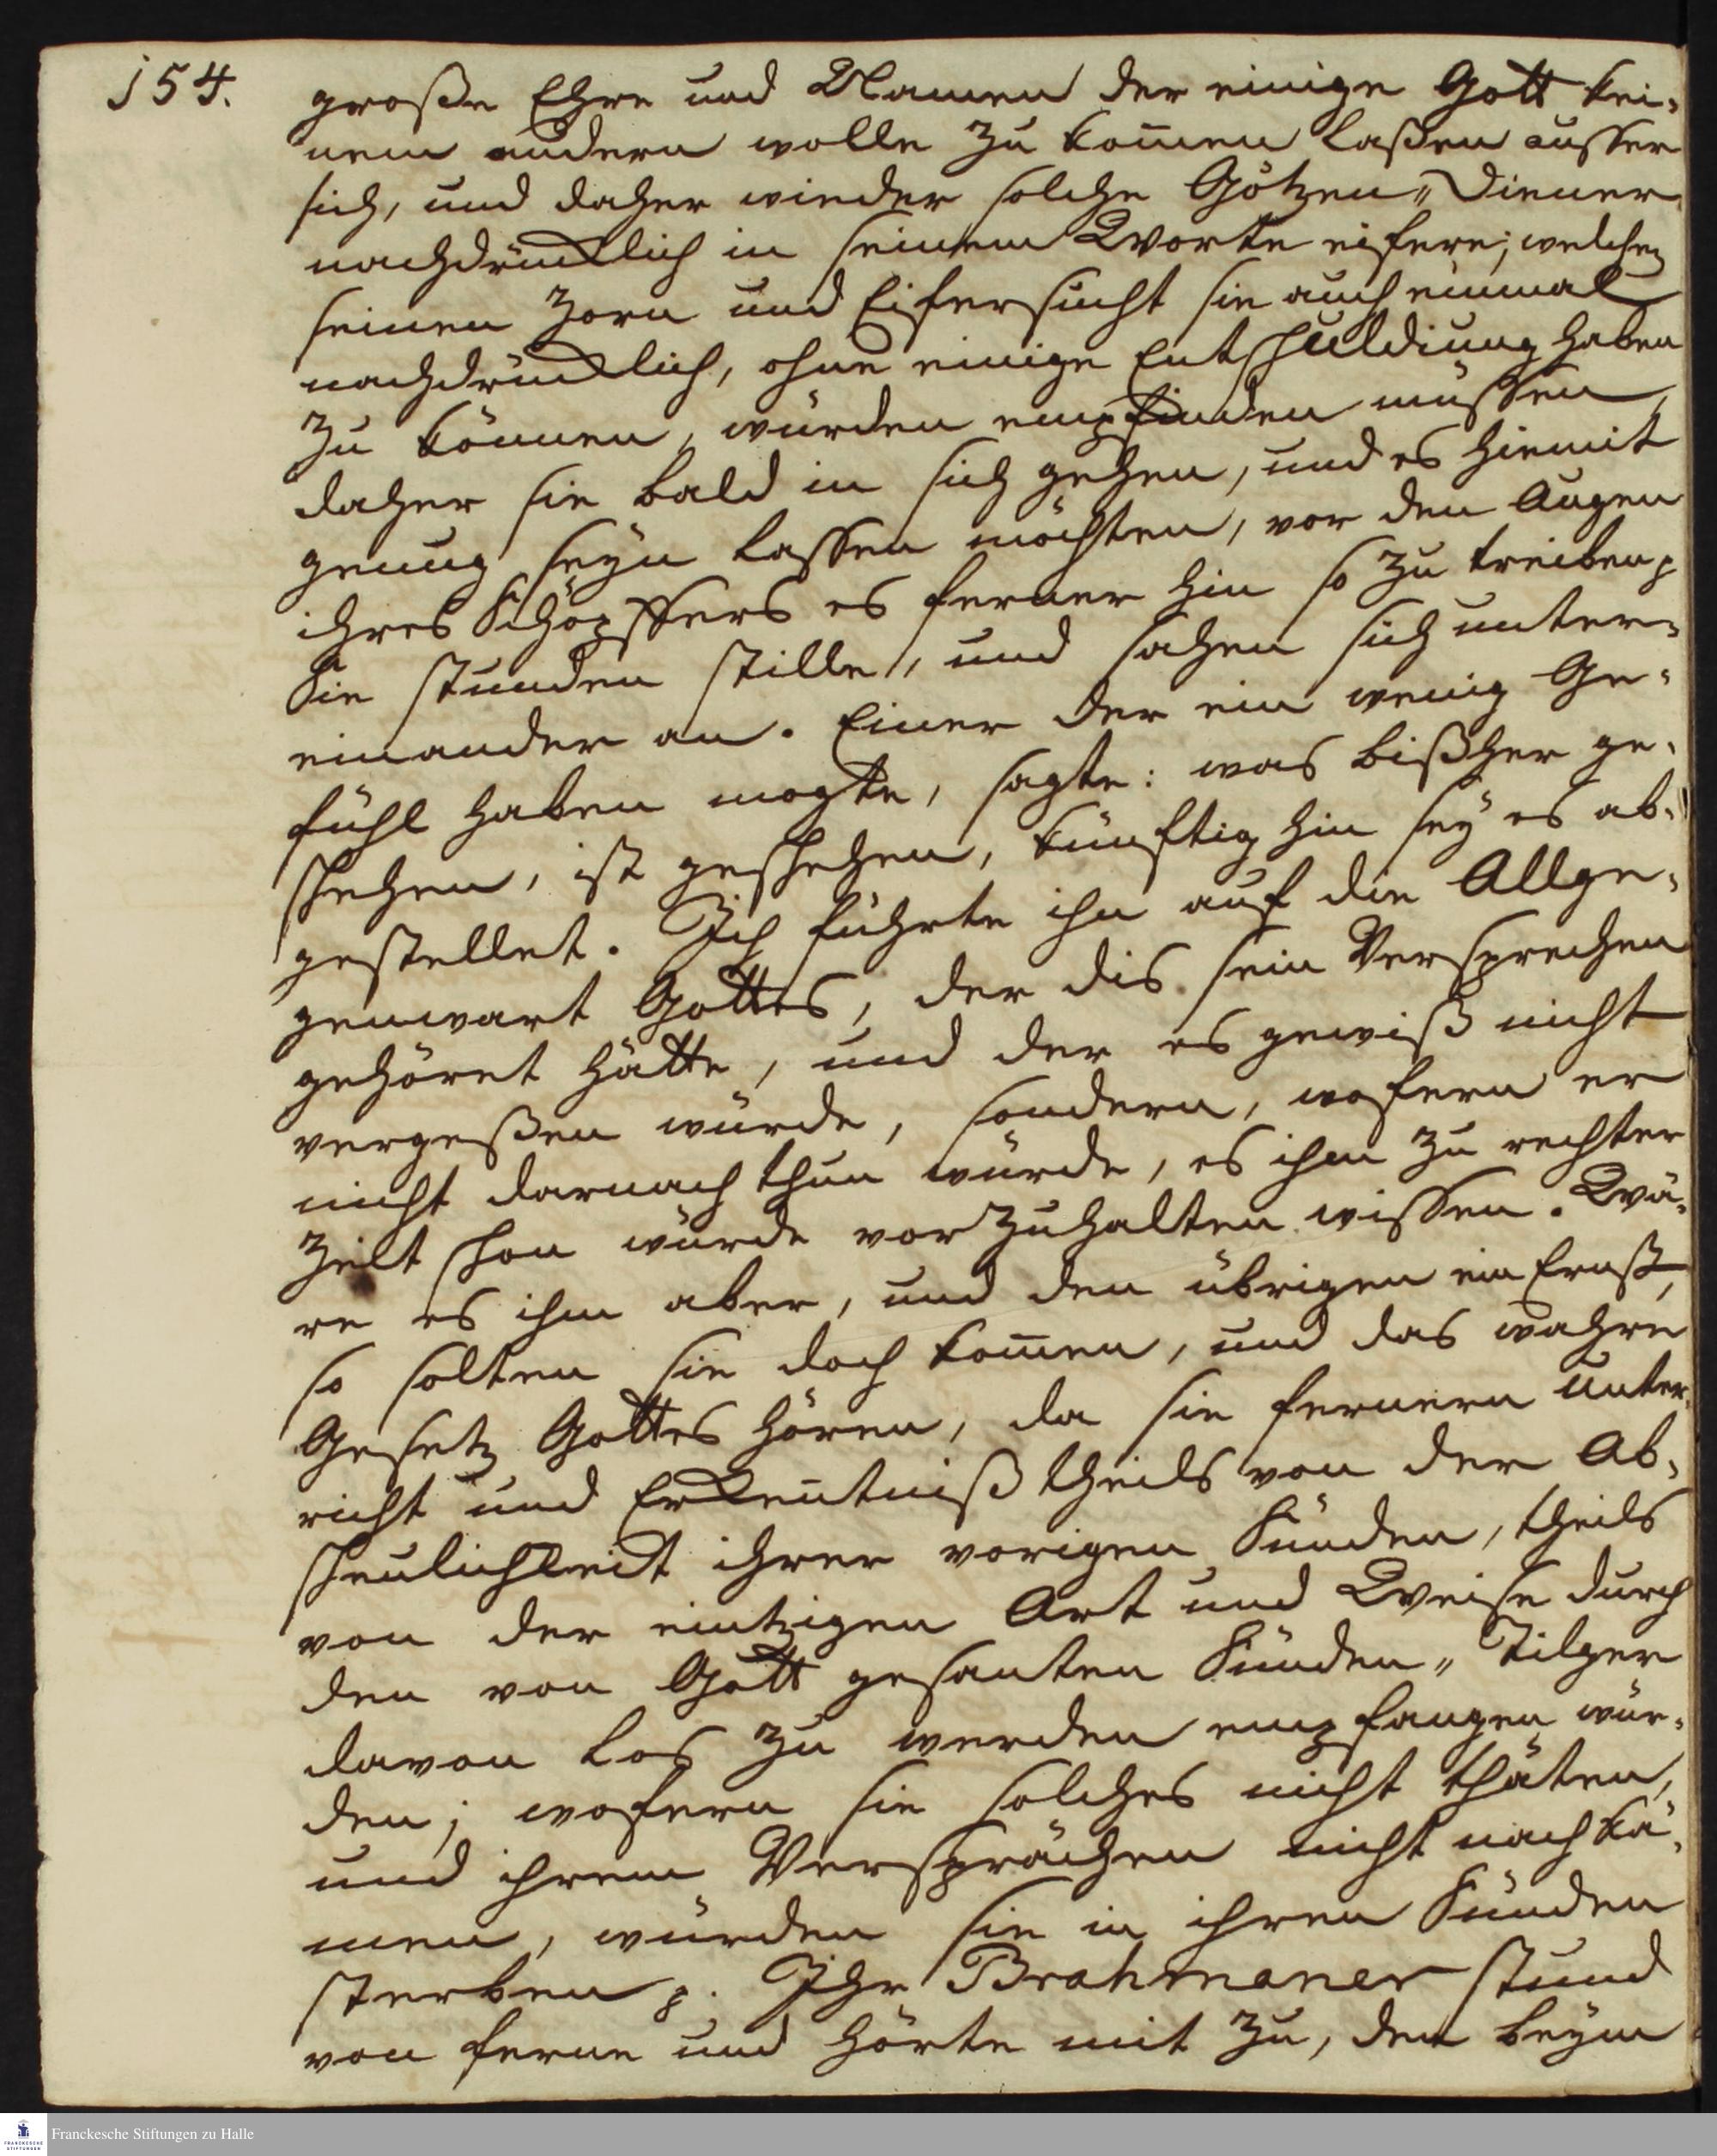 154.
große Ehre und Namen der einige Gott kei-
nem andern wolle zu kom̄en laßen ausser
sich, und daher wieder solche Götzen„Diener
nachdrücklich in seinem Worte eifere; welchen
seinen Zorn und Eifersucht sie auch einmal
nachdrücklich, ohne einige Entschuldiung haben
zu können, würden empfinden müssen,
daher sie bald in sich gehen, und es hiemit
genug seyn lassen möchten, vor den Augen
ihres Schöpffers es ferner hin so zu treiben p
Sie stunden stille, und sahen sich unter-
einander an. Einer der ein wenig Ge-
fühl haben mogte, sagte: was bißher ge-
schehen, ist geschehen, künftig hin sey es ab-
gestellet. Ich führte ihn auf die Allge-
genwart Gottes, der dis sein Versprechen
gehöret hätte, und der es gewiß nicht
vergeßen würde, sondern, wofern er
nicht darnach thun würde, es ihm zu rechter
Zeit schon würde vorzuhalten wissen. Wä-
re es ihm aber, und den übrigen ein Ernst,
so solten sie doch kom̄en, und das wahre
Gesetz Gottes hören, da sie fernern Unter-
richt und Erken̄tniß theils von der Ab-
scheulichkeit ihrer vorigen Sünden, theils
von der eintzigen Art und Weise durch
den von Gott gesanten Sünden„Tilger
davon los zu werden empfangen wür-
den; wofern sie solches nicht thäten,
und ihrem Verspräch​en nicht nachkä-
men, würden sie in ihren Sünden
sterben p. Ihr Brahmaner stund
von ferne und hörte mit zu, dem beym
Franckesche Stiftungen zu Halle